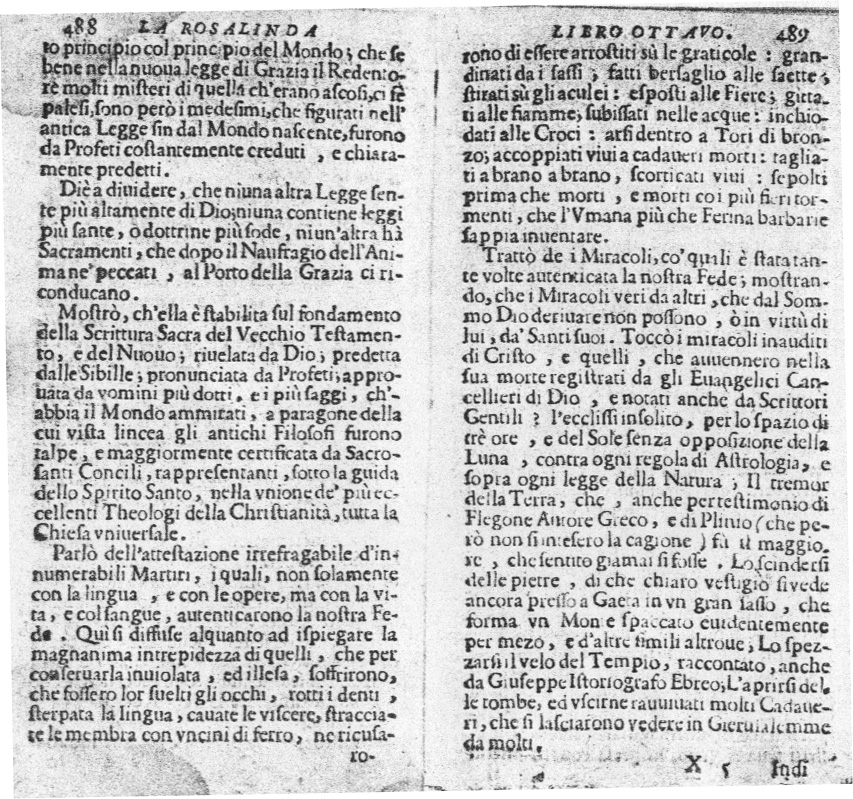 488 LA ROSALINDA
to principio col principio del Mondo; che se
bene nella nuoua legge di Grazia il Redento-
re molti misteri di quella ch'erano ascosi, ci fè
palesi, sono però i medesimi, che figurati nell'
antica Legge sin dal Mondo nascente, furono
da Profeti costantemente creduti, e chiara-
mente predetti.
Diè a diuidere, che niuna altra Legge sen-
te più altamente di Dio; niuna contiene leggi
più sante, ò dottrine più sode, niun'altra hà
Sacramenti, che dopo il Naufragio dell'Ani-
ma ne' peccati, al Porto della Grazia ci ri-
conducano.
Mostrò, ch'ella è stabilita sul fondamento
della Scrittura Sacra del Vecchio Testamen-
to, e del Nuouo; riuelata da Dio; predetta
dalle Sibille; pronunciata da Profeti; appro-
uata da vomini più dotti, e i più saggi, ch'-
abbia il Mondo ammirati, a paragone della
cui vista lincea gli antichi Filosofi furono
talpe, e maggiormente certificata da Sacro-
santi Concili, rappresentanti, sotto la guida
dello Spirito Santo, nella vnione de' più ec-
cellenti Theologi della Christianità, tutta la
Chiesa vniuersale.
Parlò dell'attestazione irrefragabile d'in-
numerabili Martiri, i quali, non solamente
con la lingua, e con le opere, ma con la vi-
ta, e col sangue, autenticarono la nostra Fe-
de. Qui si diffuse alquanto ad ispiegare la
magnanima intrepidezza di quelli, che per
conseruarla inuiolata, ed illesa, soffrirono,
che fossero lor suelti gli occhi, rotti i denti,
sterpata la lingua, cauate le viscere, straccia-
te le membra con vncini di ferro, ne ricusa-
ro-
LIBRO OTTAVO. 489
rono di essere arrostiti sù le graticole: gran-
dinati da i sassi; fatti bersaglio alle saette;
stirati sù gli aculei: esposti alle Fiere; gitta-
ti alle fiamme; subissati nelle acque: inchio-
dati alle Croci: arsi dentro a Tori di bron-
zo; accoppiati viui a cadaueri morti: taglia-
ti a brano a brano, scorticati viui: sepolti
prima che morti, e morti coi più fieri tor-
menti, che l'Vmana più che Ferina barbarie
sappia inuentare.
Trattò de i Miracoli, co' quali è stata tan-
te volte autenticata la nostra Fede; mostran-
do, che i Miracoli veri da altri, che dal Som-
mo Dio deriuare non possono, ò in virtù di
lui, da' Santi suoi. Toccò i miracoli inauditi
di Cristo, e quelli, che auuennero nella
sua morte registrati da gli Euangelici Can-
cellieri di Dio, e notati anche da Scrittori
Gentili? l'ecclissi insolito, per lo spazio di
trè ore, e del Sole senza opposizione della
Luna, contra ogni regola di Astrologia, e
sopra ogni legge della Natura; Il tremor
della Terra, che, anche per testimonio di
Flegone Autore Greco, e di Plinio (che pe-
rò non si intesero la cagione) fù il maggio-
re, che sentito giamai si fosse. Lo scindersi
delle pietre, di che chiaro vestigio si vede
ancora presso a Gaeta in vn gran sasso, che
forma vn Monte spaccato euidentemente
per mezo, e d'altre simili altroue; Lo spez-
zarsi il velo del Tempio, raccontato, anche
da Giuseppe Istoriografo Ebreo; L'aprirsi del-
le tombe, ed vscirne rauuiuati molti Cadaue-
ri, che si lasciarono vedere in Gierusalemme
da molti.
X 5 Indi